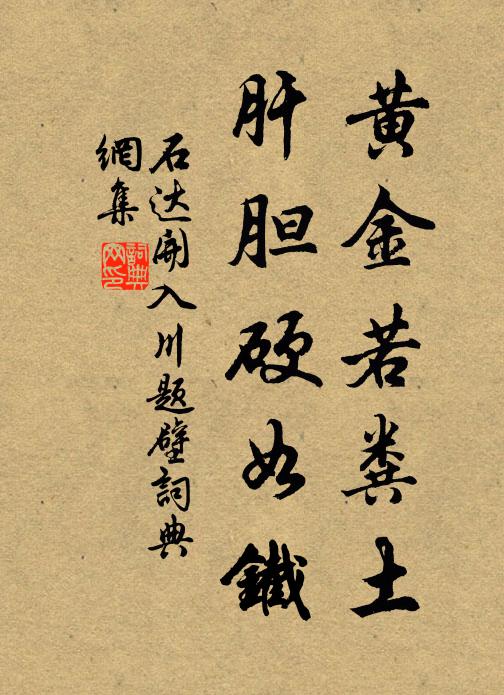 黄金若粪土
肝胆硬如鐵
石达開入川题壁詞典
網集
詞典
网印